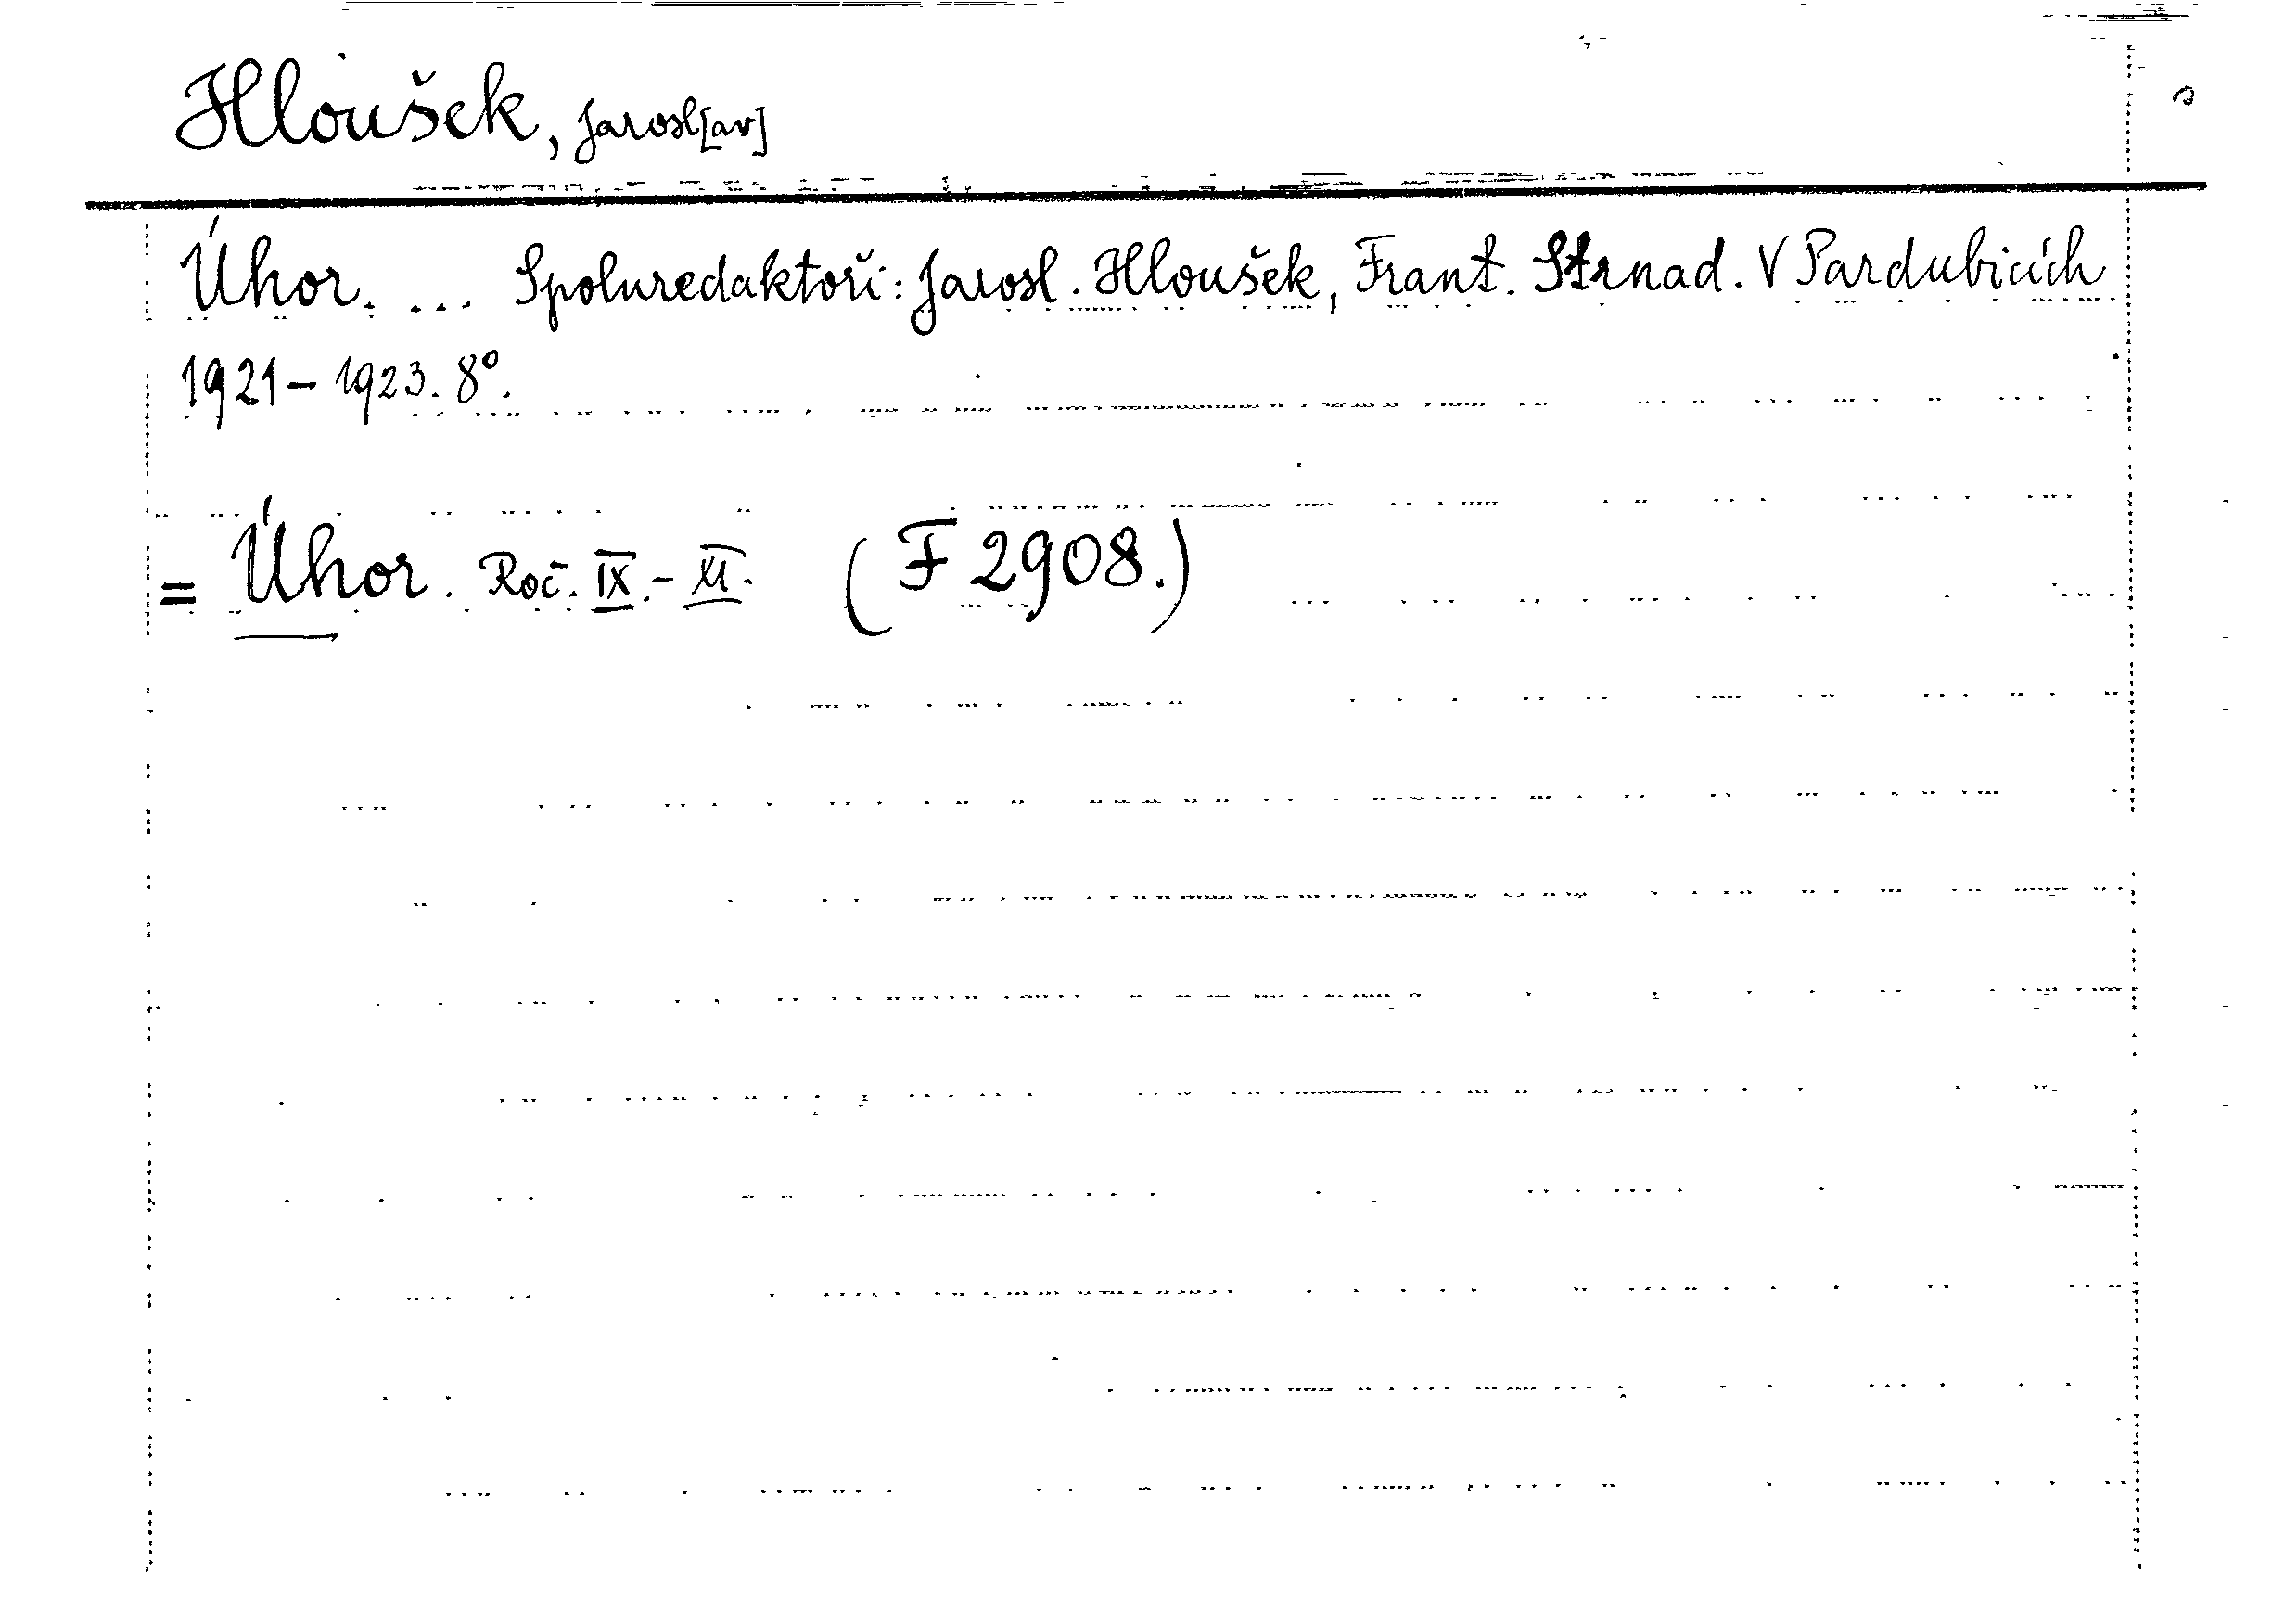 Hloušek, Jarosl[av]
Úhor. ... Spoluredaktoři: Jarosl. Hloušek, Frant. Strnad. V Pardubicích
1921 – 1923. 8°.
= Úhor. Roč. IX. – XI. (F 2908.)